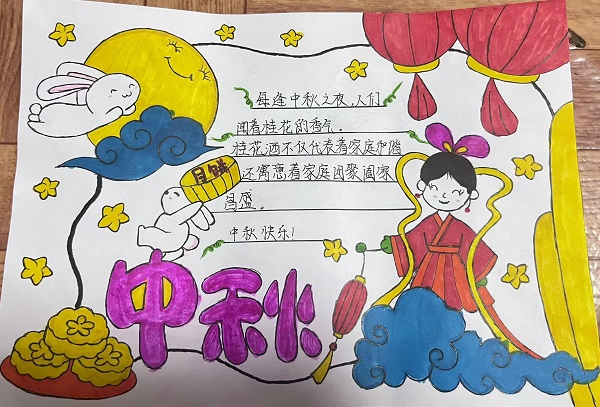 每逢中秋之夜,人们
闻着桂花的香气。
桂花酒不仅代表着家庭和谐
还寓意着家庭团聚阖家
昌盛。
中秋快乐!
月饼
中秋